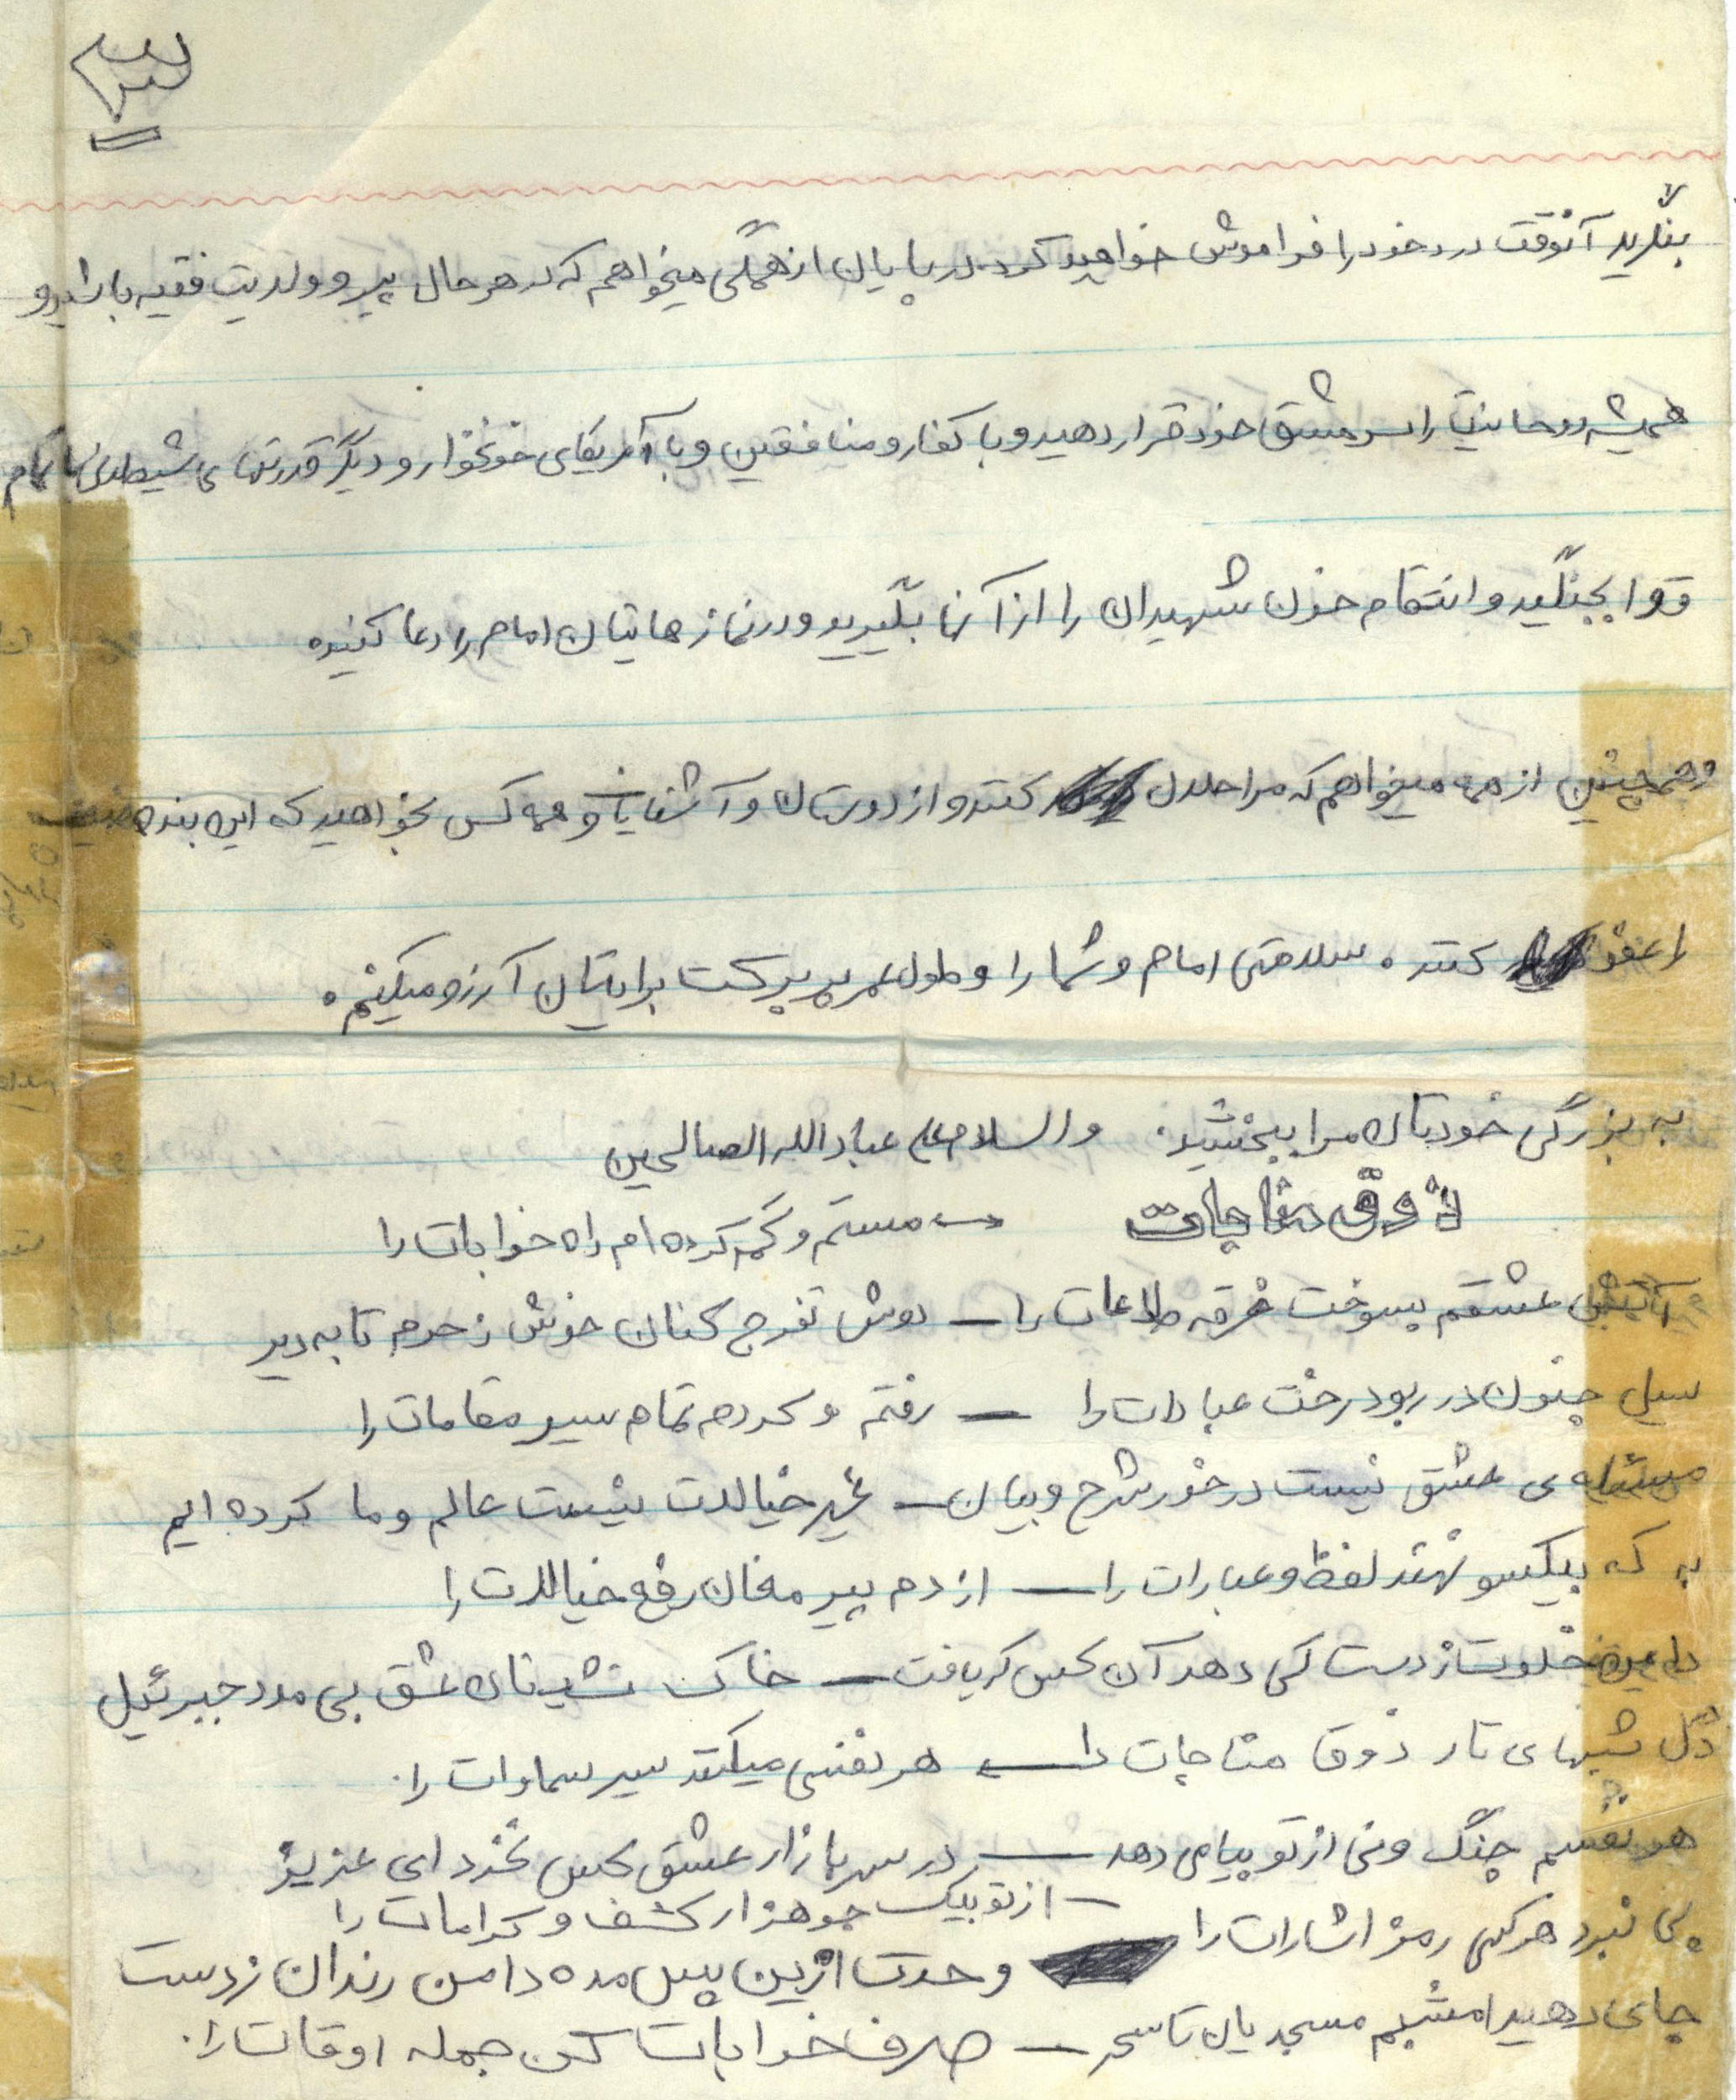 بنگرید آنوقت درد خود را فراموش خواهید کرد. در پایان از همگی میخواهم که در هر حال پیرو ولایت فقیه باشید و
همیشه روحانیت را سرمشق خود قرار دهید و با کفار و منافقین و با آمریکای خونخوار و دیگر قدرتهای شیطانی با تمام
قوا بجنگید و انتقام خون شهیدان را از آنها بگیرید و در نمازهایتان امام را دعا کنید.
و همچنین از همه میخواهم که مرا حلال کنند و از دوستان و آشنایان و همه کس بخواهید که این بنده ضعیف
را عفو کنند. سلامتی امام و شما را و طول عمر پر برکت برایتان آرزو میکنم.
به بزرگی خودتان مرا ببخشید. والسلام علی عبادالله الصالحین
ذوق مناجات
مستم و گم کرده ام راه خرابات را
آتش عشقم بسوخت خرقه طاعات را — دوش تفرج کنان خوش ز حرم تا به دیر
سیل جنون در ربود رخت عبادات را — رفتم و کردم تمام سیر مقامات را
مسئله ی عشق نیست در خور شرح و بیان — غیر خیالات نیست عالم و ما کرده ایم
به که بیکسو نهند لفظ و عبارات را — از دم پیر مغان رفع خیالات را
دامن خلوت ز دست کی دهد آن کس که یافت — خاک نشینان عشق بی مدد جبرئیل
دل شبهای تار ذوق مناجات را — هر نفسی میکنند سیر سماوات را.
هر نفسم چنگ و نی از تو پیامی دهد — در سر بازار عشق کس نخرد ای عزیز
پی نبرد هر کسی رمز اشارات را — از تو بیک جو هزار کشف و کرامات را
وحدت ازین پس مده دامن رندان ز دست
جای دهید امشبم مسجدیان تا سحر — صرف خرابات کن جمله اوقات را.